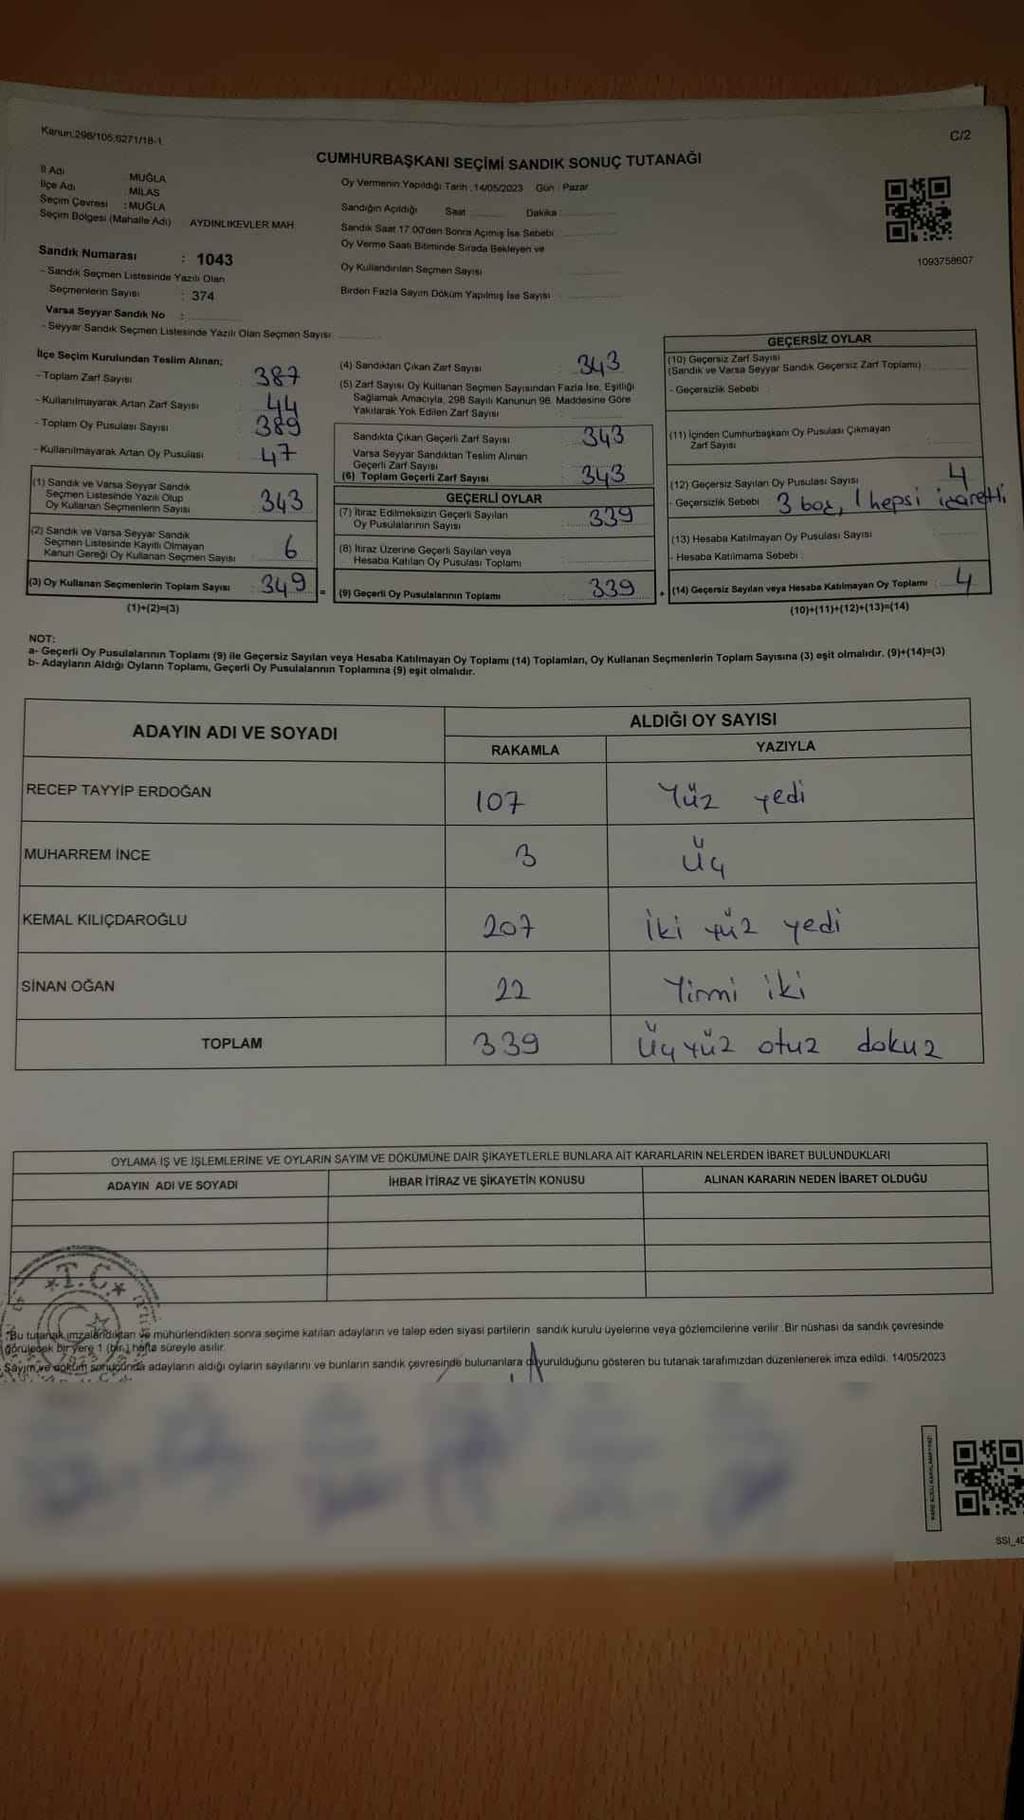 Kanun:298/105;6271/18-1
C/2
CUMHURBAŞKANI SEÇİMİ SANDIK SONUÇ TUTANAĞI
İl Adı MUĞLA
İlçe Adı MİLAS
Seçim Çevresi : MUĞLA
Seçim Bölgesi (Mahalle Adı) AYDINLIKEVLER MAH
Sandık Numarası : 1043
- Sandık Seçmen Listesinde Yazılı Olan
Seçmenlerin Sayısı : 374
Varsa Seyyar Sandık No :
- Seyyar Sandık Seçmen Listesinde Yazılı Olan Seçmen Sayısı
Oy Vermenin Yapıldığı Tarih : 14/05/2023 Gün : Pazar
Sandığın Açıldığı Saat Dakika
Sandık Saat 17.00'den Sonra Açılmış İse Sebebi
Oy Verme Saati Bitiminde Sırada Bekleyen ve
Oy Kullandırılan Seçmen Sayısı
Birden Fazla Sayım Döküm Yapılmış İse Sayısı
1093758607
İlçe Seçim Kurulundan Teslim Alınan;
- Toplam Zarf Sayısı 387
- Kullanılmayarak Artan Zarf Sayısı 44
- Toplam Oy Pusulası Sayısı 389
- Kullanılmayarak Artan Oy Pusulası 47
(1) Sandık ve Varsa Seyyar Sandık
Seçmen Listesinde Yazılı Olup
Oy Kullanan Seçmenlerin Sayısı 343
(2) Sandık ve Varsa Seyyar Sandık
Seçmen Listesinde Kayıtlı Olmayan
Kanun Gereği Oy Kullanan Seçmen Sayısı 6
(3) Oy Kullanan Seçmenlerin Toplam Sayısı 349
(1)+(2)=(3)
(4) Sandıktan Çıkan Zarf Sayısı : 343
(5) Zarf Sayısı Oy Kullanan Seçmen Sayısından Fazla İse, Eşitliği
Sağlamak Amacıyla, 298 Sayılı Kanunun 98. Maddesine Göre
Yakılarak Yok Edilen Zarf Sayısı
Sandıkta Çıkan Geçerli Zarf Sayısı : 343
Varsa Seyyar Sandıktan Teslim Alınan
Geçerli Zarf Sayısı
(6) Toplam Geçerli Zarf Sayısı 343
GEÇERLİ OYLAR
(7) İtiraz Edilmeksizin Geçerli Sayılan
Oy Pusulalarının Sayısı 339
(8) İtiraz Üzerine Geçerli Sayılan veya
Hesaba Katılan Oy Pusulası Toplamı
= (9) Geçerli Oy Pusulalarının Toplamı 339
GEÇERSİZ OYLAR
(10) Geçersiz Zarf Sayısı
(Sandık ve Varsa Seyyar Sandık Geçersiz Zarf Toplamı)
- Geçersizlik Sebebi
(11) İçinden Cumhurbaşkanı Oy Pusulası Çıkmayan
Zarf Sayısı
(12) Geçersiz Sayılan Oy Pusulası Sayısı 4
- Geçersizlik Sebebi 3 boş, 1 hepsi işaretli
(13) Hesaba Katılmayan Oy Pusulası Sayısı
- Hesaba Katılmama Sebebi :
+ (14) Geçersiz Sayılan veya Hesaba Katılmayan Oy Toplamı : 4
(10)+(11)+(12)+(13)=(14)
NOT:
a- Geçerli Oy Pusulalarının Toplamı (9) ile Geçersiz Sayılan veya Hesaba Katılmayan Oy Toplamı (14) Toplamları, Oy Kullanan Seçmenlerin Toplam Sayısına (3) eşit olmalıdır. (9)+(14)=(3)
b- Adayların Aldığı Oyların Toplamı, Geçerli Oy Pusulalarının Toplamına (9) eşit olmalıdır.
ADAYIN ADI VE SOYADI ALDIĞI OY SAYISI
RAKAMLA YAZIYLA
RECEP TAYYİP ERDOĞAN 107 Yüz yedi
MUHARREM İNCE 3 Üç
KEMAL KILIÇDAROĞLU 207 iki yüz yedi
SİNAN OĞAN 22 Yirmi iki
TOPLAM 339 Üçyüz otuz dokuz
OYLAMA İŞ VE İŞLEMLERİNE VE OYLARIN SAYIM VE DÖKÜMÜNE DAİR ŞİKAYETLERLE BUNLARA AİT KARARLARIN NELERDEN İBARET BULUNDUKLARI
ADAYIN ADI VE SOYADI İHBAR İTİRAZ VE ŞİKAYETİN KONUSU ALINAN KARARIN NEDEN İBARET OLDUĞU
T.C.
*Bu tutanak imzalandıktan ve mühürlendikten sonra seçime katılan adayların ve talep eden siyasi partilerin sandık kurulu üyelerine veya gözlemcilerine verilir. Bir nüshası da sandık çevresinde
görülecek bir yere 1 (bir) hafta süreyle asılır.
Sayım ve döküm sonucunda adayların aldığı oyların sayılarını ve bunların sandık çevresinde bulunanlara duyurulduğunu gösteren bu tutanak tarafımızdan düzenlenerek imza edildi. 14/05/2023